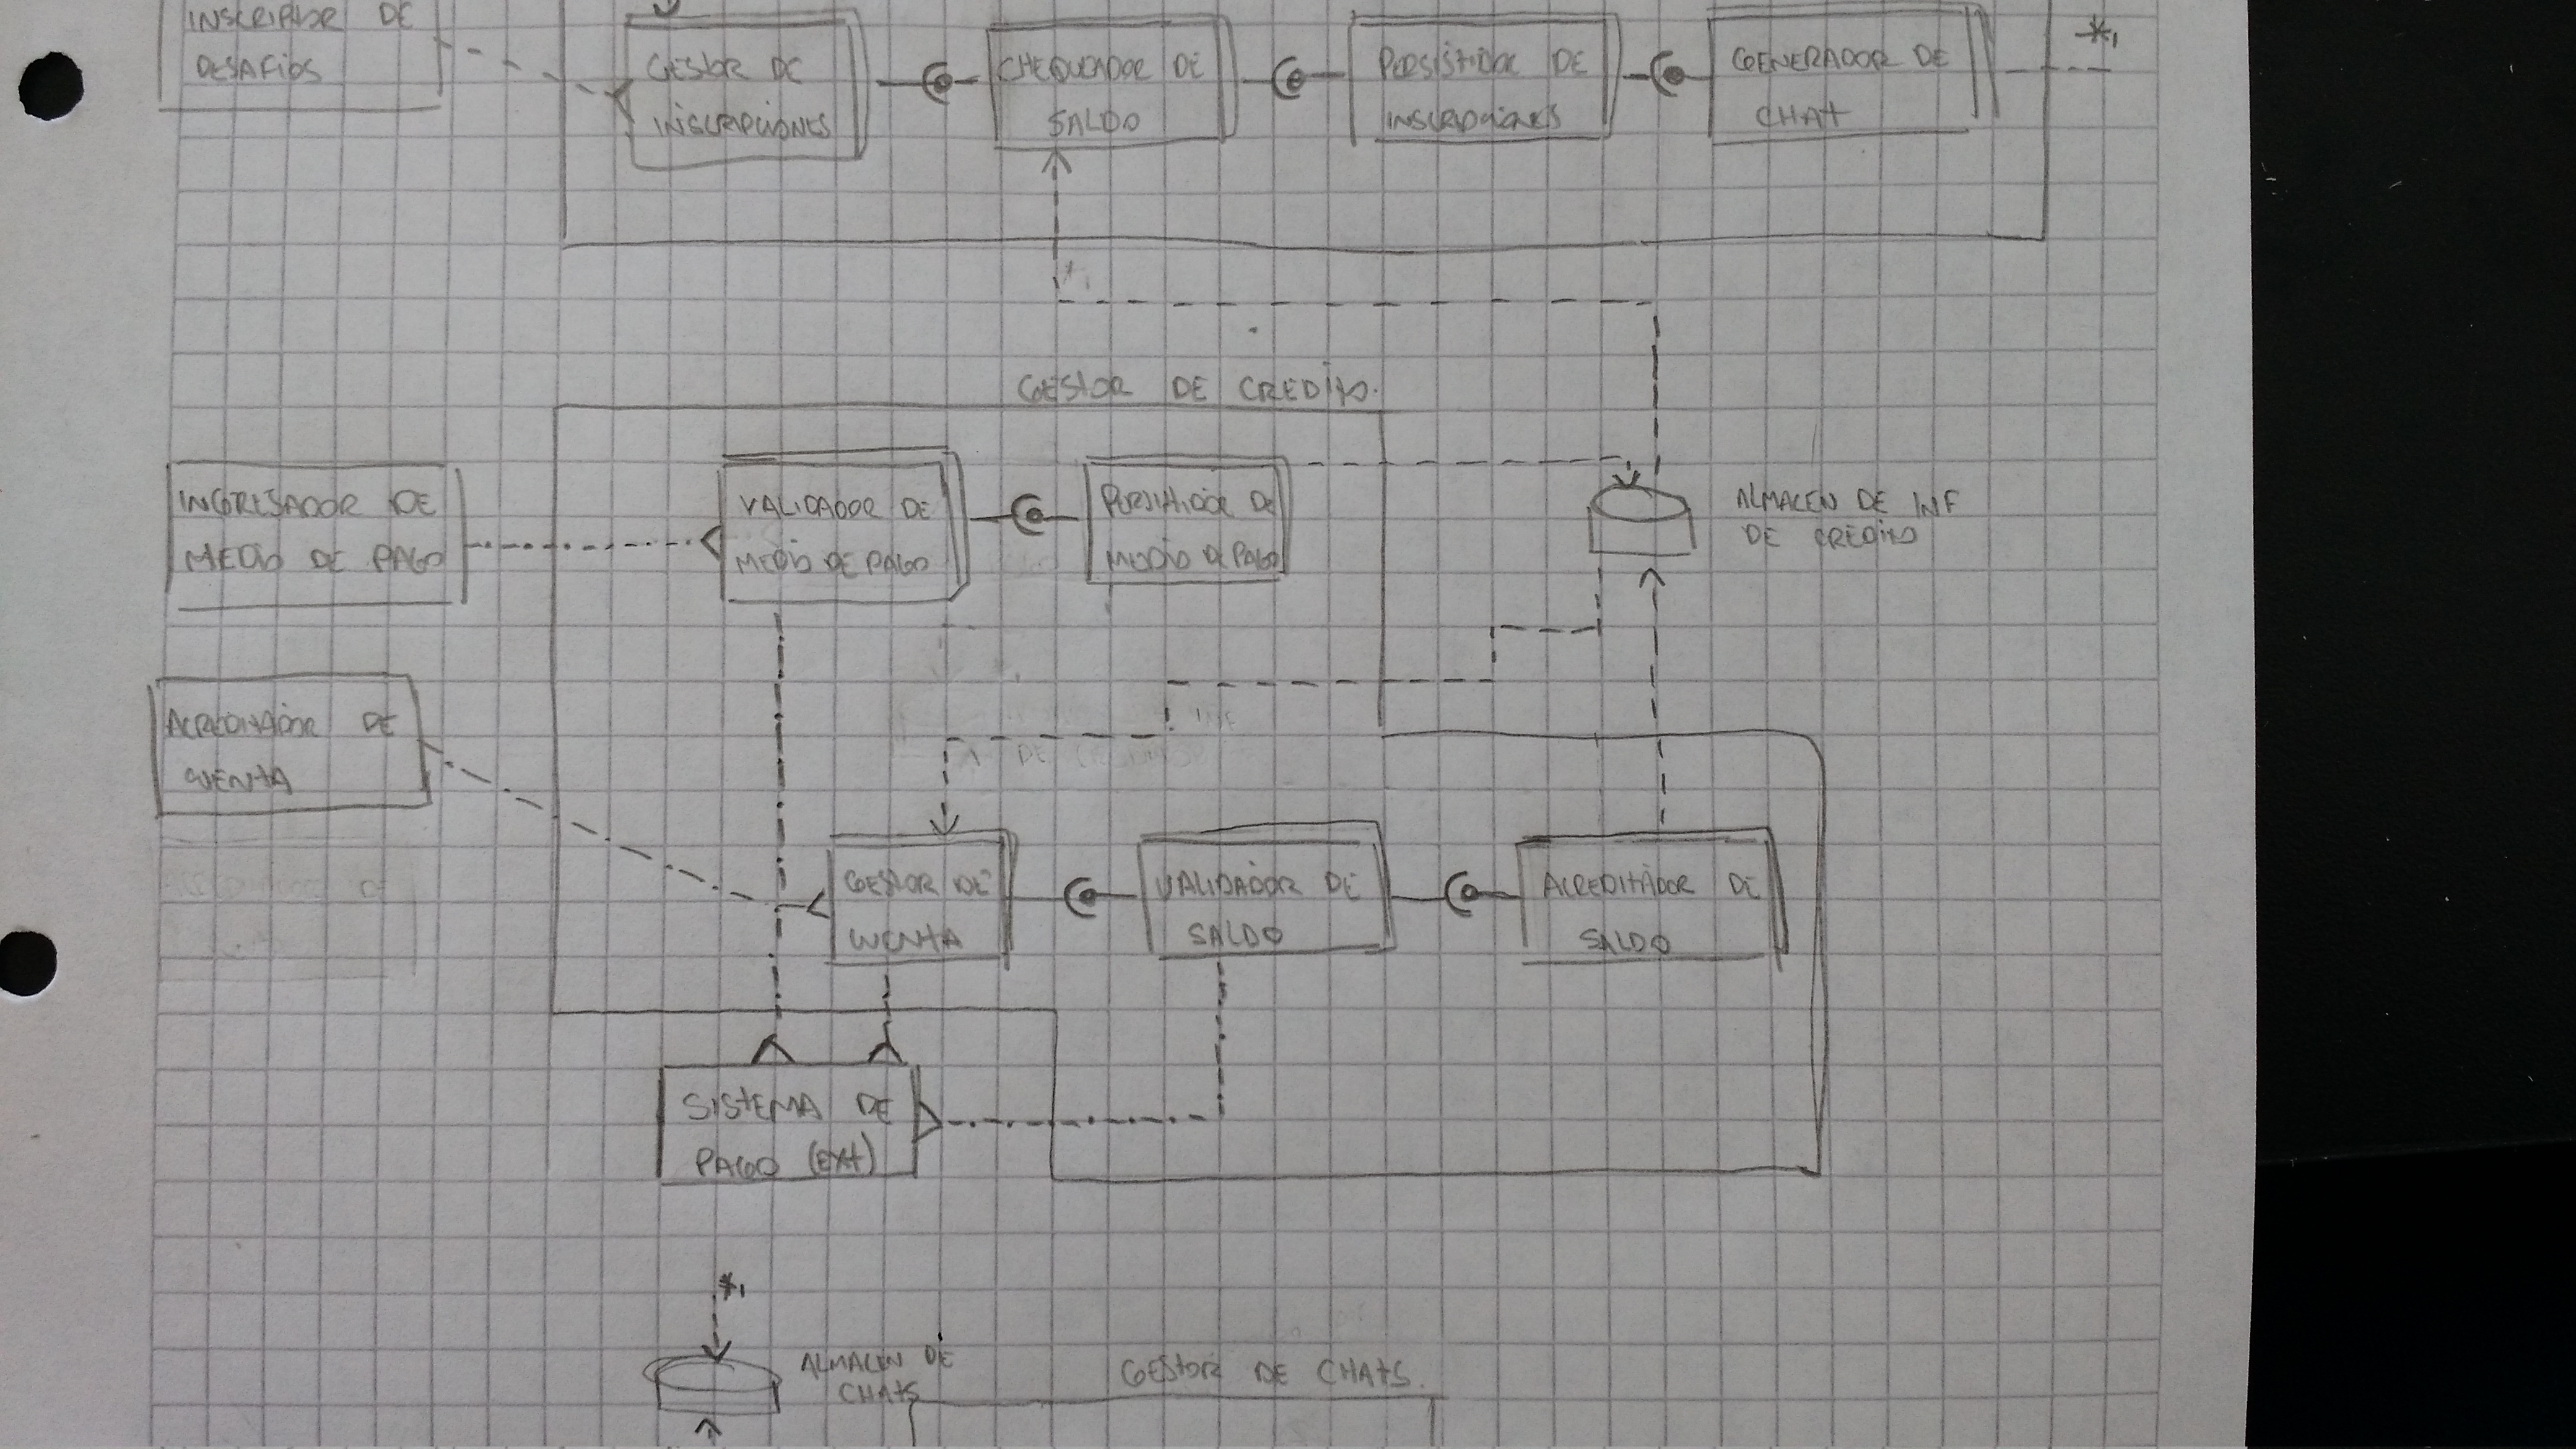 INSCRIPTOR DE
DESAFIOS
GESTOR DE
INSCRIPCIONES
CHEQUEADOR DE
SALDO
PERSISTIDOR DE
INSCRIPCIONES
GENERADOR DE
CHAT
*1
GESTOR DE CREDITO.
INGRESADOR DE
MEDIO DE PAGO
VALIDADOR DE
MEDIO DE PAGO
PERSISTIDOR DE
MEDIO DE PAGO
ALMACEN DE INF
DE CREDITO
ACREDITADOR DE
CUENTA
GESTOR DE
CUENTA
VALIDADOR DE
SALDO
ACREDITADOR DE
SALDO
SISTEMA DE
PAGO (EXT)
*1
ALMACEN DE
CHATS
GESTOR DE CHATS.